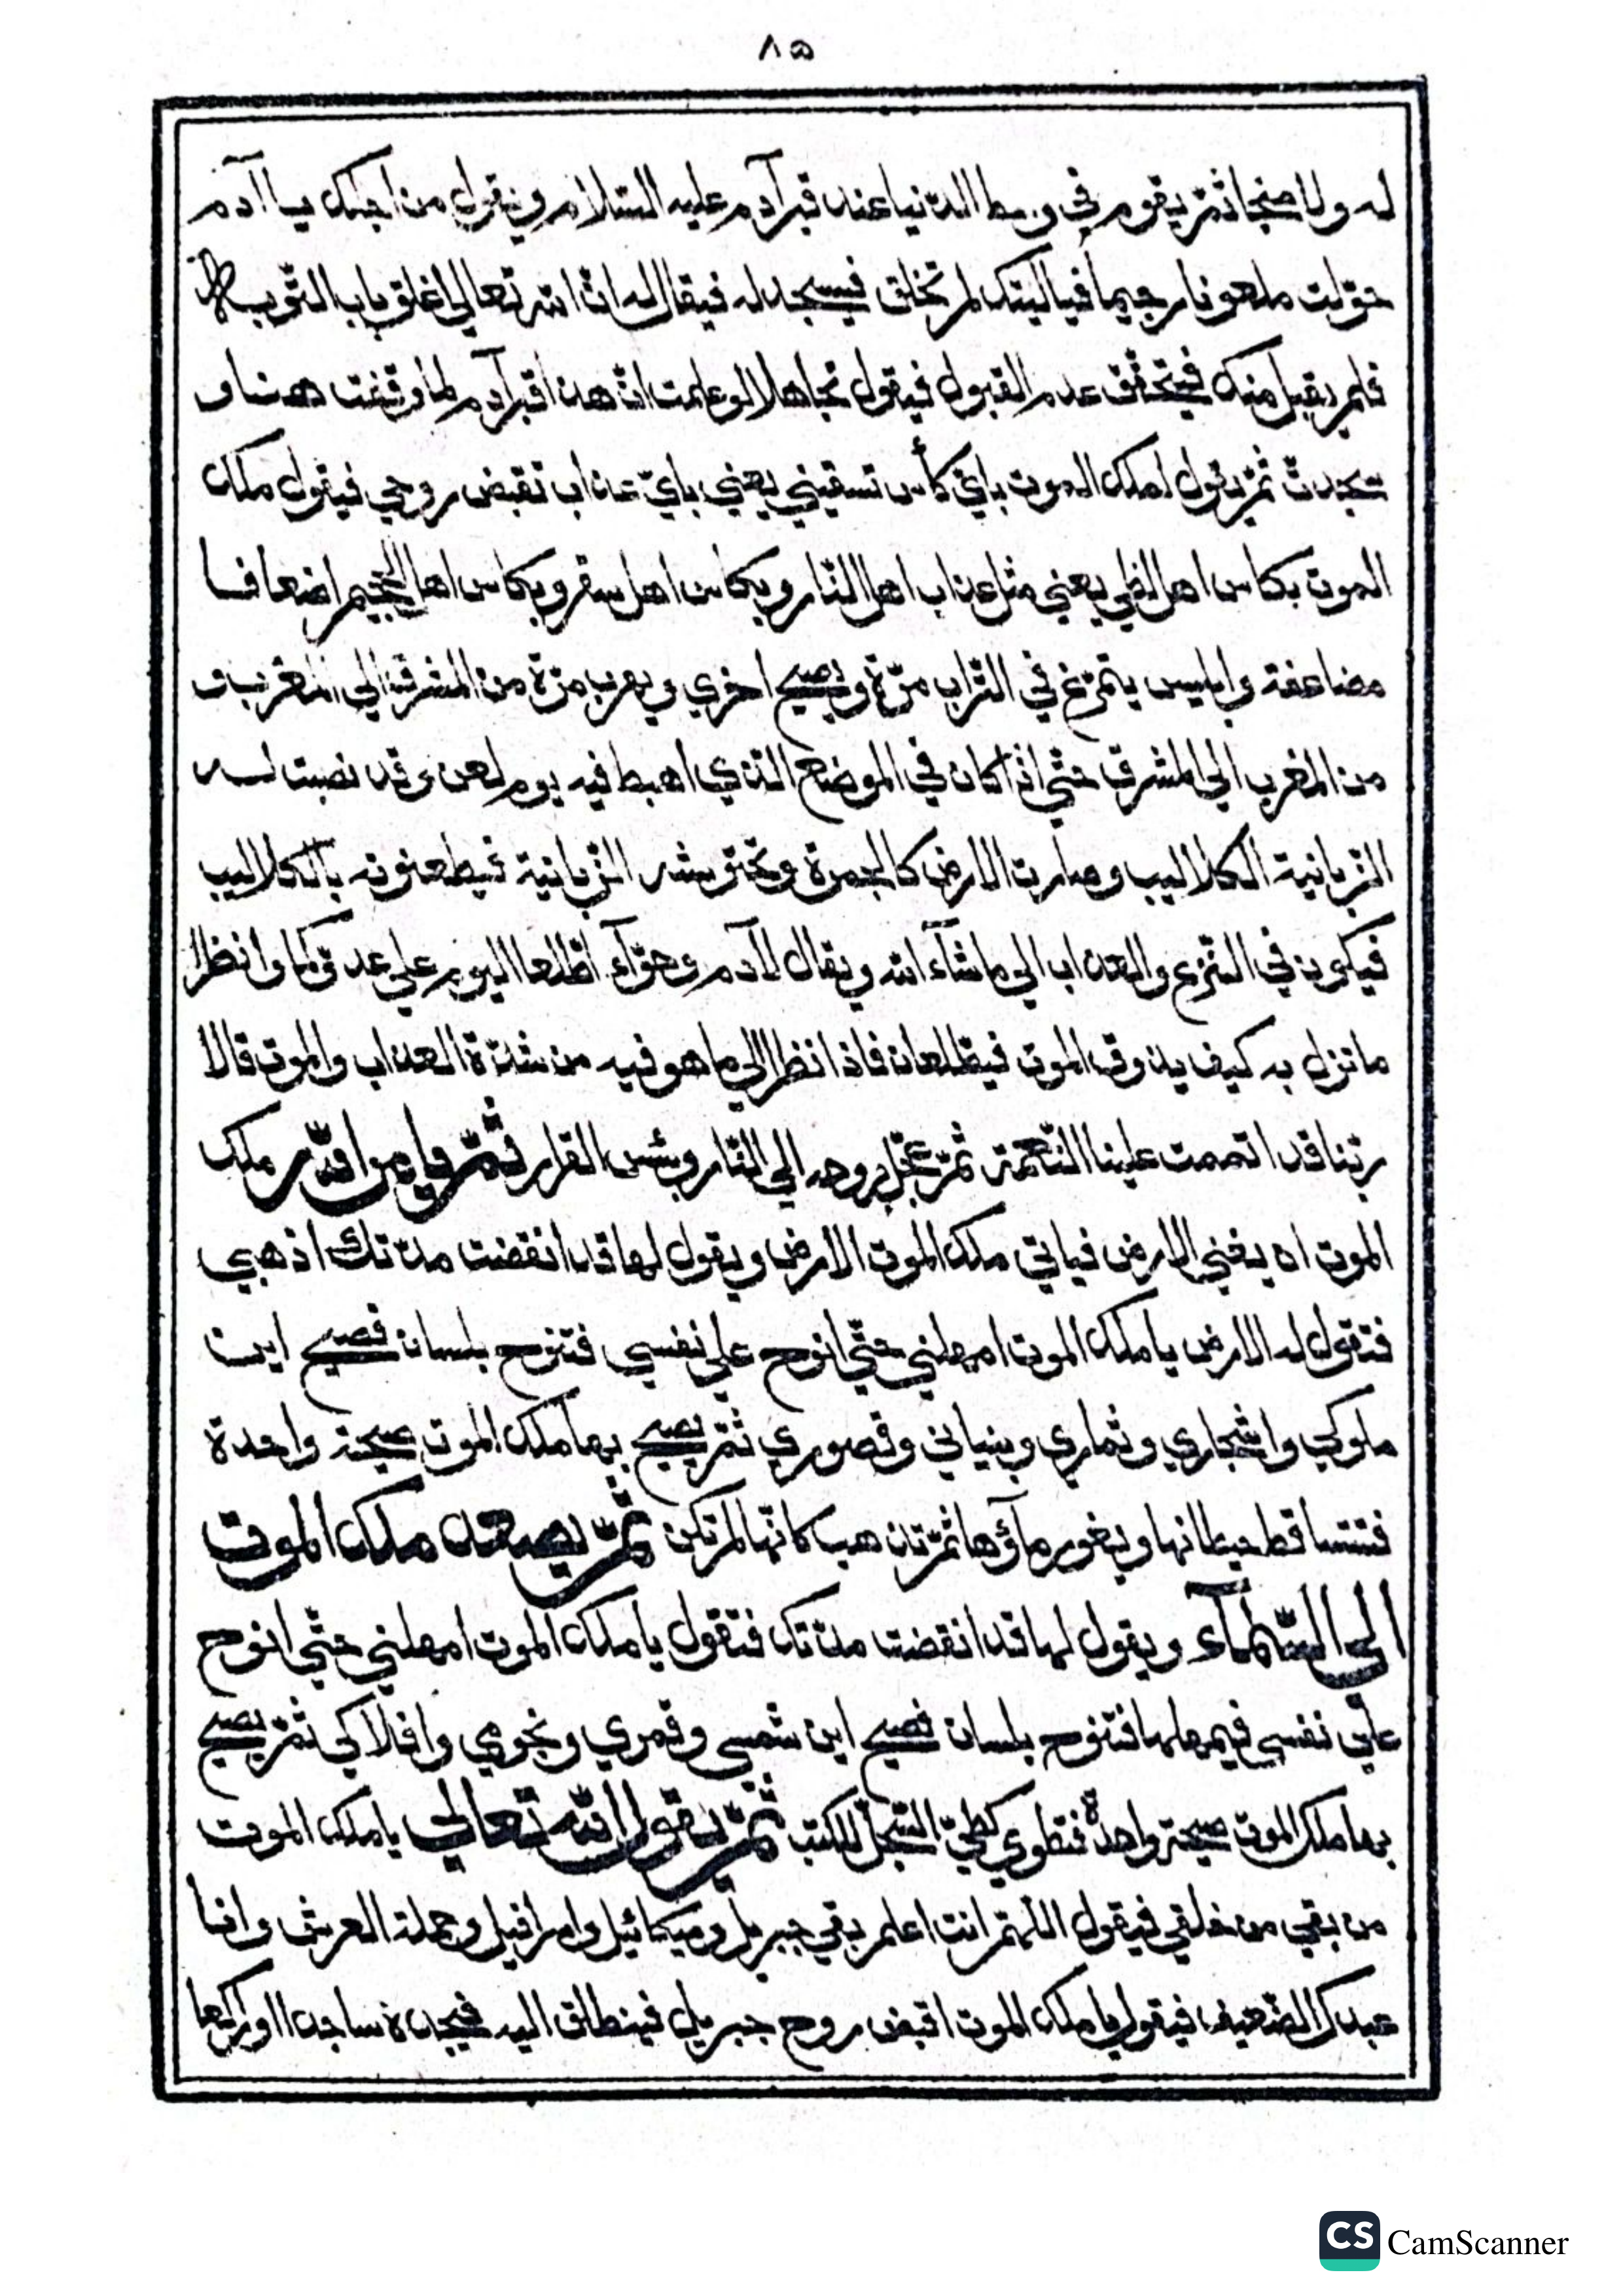 ٨٥
له ولا منجا ثمّ يقوم في وسط الدّنيا عند قبر آدم عليه السّلام ويقول من اجلك يا آدم
حوّلت ملعونا رجيما فياليتك لم تخلق فيسجد له فيقال له انّ الله تعالي اغلق باب التّوبة
فلم يقبل منك فيتحقّق عدم القبول فيقول تجاهلا لو علمت انّ هذا قبر آدم لما وقفت هنا و
سجدتّ ثمّ يقول لملك الموت بايّ كأس تسقيني يعني بايّ عذاب تقبض روحي فيقول ملك
الموت بكاس اهل لظي يعني مثل عذاب اهل النّار وبكاس اهل سقر وبكاس اهل الجحيم اضعافا
مضاعفة وابليس يتمرّغ في التّراب مرّة ويصيح اخري ويهرب مرّة من المشرق الي المغرب و
من المغرب الي المشرق حتّي اذا كان في الموضع الّذي اهبط فيه يوم لعن وقد نصبت له
الزّبانية الكلاليب وصارت الارض كالجمرة وتحتوشه الزّبانية فيطعنونه بالكلاليب
فيكون في النّزع والعذاب الي ما شآء الله ويقال لآدم وحوّآء اطّلعا اليوم علي عدوّكما وانظرا
ما نزل به كيف يذوق الموت فيطّلعان فاذا نظرا الي ما هو فيه من شدّة العذاب والموت قالا
ربّنا قد اتممت علينا النّعمة ثمّ عجّل بروحه الي النّار وبئس القرار ثمّ يامر الله ملك
الموت ان يفني الارض فياتي ملك الموت الارض ويقول لها قد انقضت مدّتك اذهبي
فتقول له الارض يا ملك الموت امهلني حتّي انوح علي نفسي فتنوح بلسان فصيح اين
ملوكي واشجاري وثماري وبنياني وقصوري ثمّ يصيح بها ملك الموت صيحة واحدة
فتتساقط حيطانها ويغور مآؤها ثمّ تذهب كانّها لم تكن ثمّ يصعد ملك الموت
الي السّمآء ويقول لها قد انقضت مدّتك فتقول يا ملك الموت امهلني حتّي انوح
علي نفسي فيمهلها فتنوح بلسان فصيح اين شمسي وقمري ونجومي وافلاكي ثمّ يصيح
بها ملك الموت صيحة واحدة فتطوي كطيّ السّجلّ للكتب ثمّ يقول الله تعالي يا ملك الموت
من بقي من خلقي فيقول اللّهمّ انت اعلم بقي جبريل وميكائيل واسرافيل وحملة العرش وانا
عبدك الضّعيف فيقول يا ملك الموت اقبض روح جبريل فينطلق اليه فيجده ساجدا او راكعا
CS CamScanner